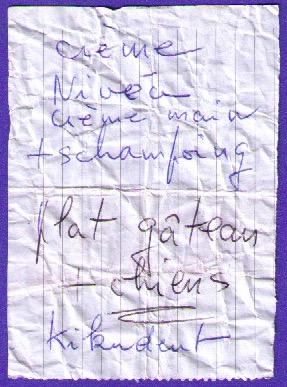 crème
Nivéa
crème main
+ schampoing
plat gâteau
- chiens
Kikudent